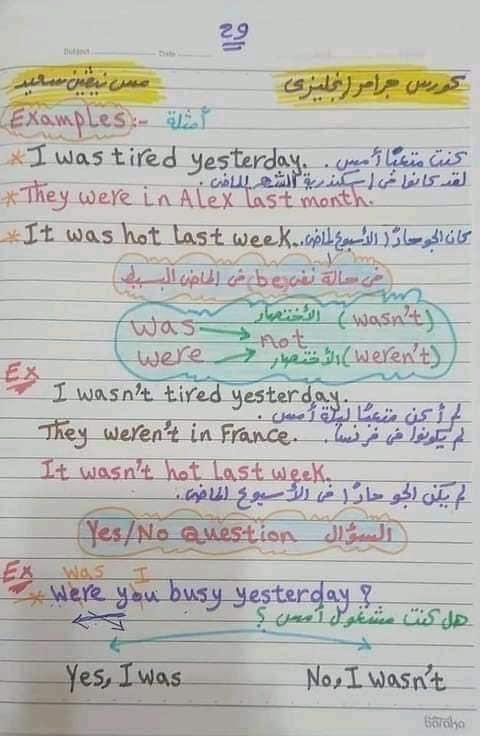 29
Subject Date
كورس جرامر إنجليزى مس نيڤين سعيد
Examples:- أمثلة
* I was tired yesterday. كنت متعبًا أمس.
لقد كانوا فى إسكندرية الشهر الماضى.
* They were in Alex last month.
* It was hot last week. كان الجو حارًا الأسبوع الماضى.
فى حالة نفى (be) فى الماضى البسيط
was → not الأختصار (wasn't)
were → not الأختصار (weren't)
Ex
I wasn't tired yesterday.
لم أكن متعبًا ليلة أمس.
They weren't in France. لم يكونوا فى فرنسا.
It wasn't hot last week.
لم يكن الجو حارًا فى الأسبوع الماضى.
Yes/No Question السؤال
Ex was I
* Were you busy yesterday?
هل كنت مشغول أمس؟
Yes, I was No, I wasn't
Baraka